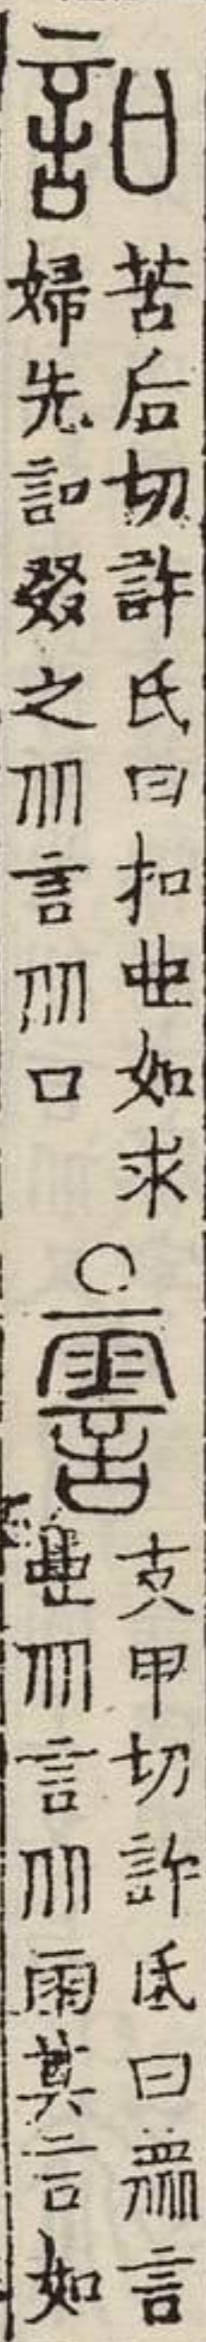 苦后切許氏曰扣也如求
婦先叕之从言从口
○霅
丈甲切許氏曰言
也从言从雨其言如